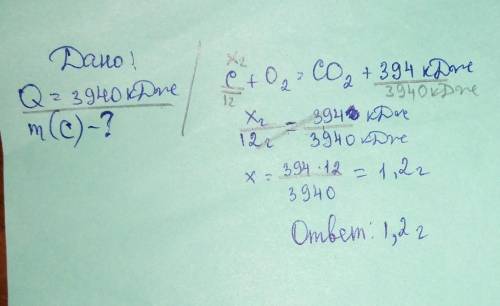 Дано!
Q = 3940 кДж
m(C) - ?
x г
C + O₂ = CO₂ + 394 кДж
12 3940 кДж
x г / 12 г = 394 кДж / 3940 кДж
x = 394 · 12 / 3940 = 1,2 г
Ответ: 1,2 г